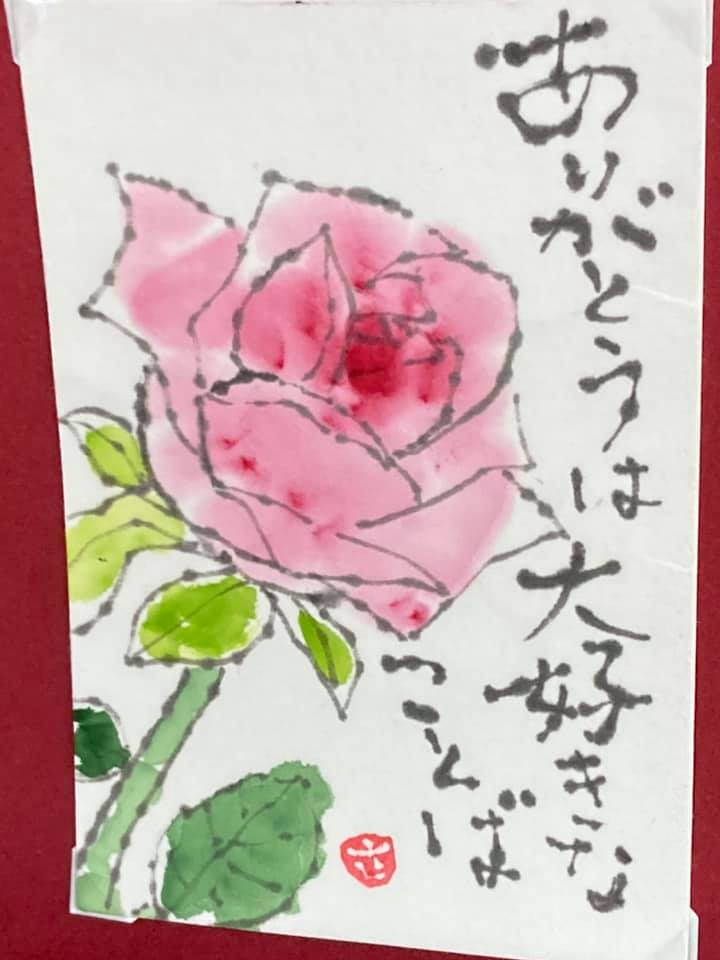 ありがとうは大好きな
ことば